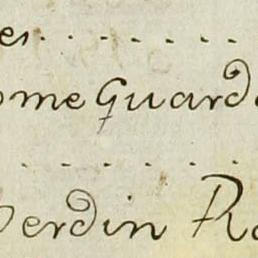 er........
ome Guarda
......
Verdin Ra